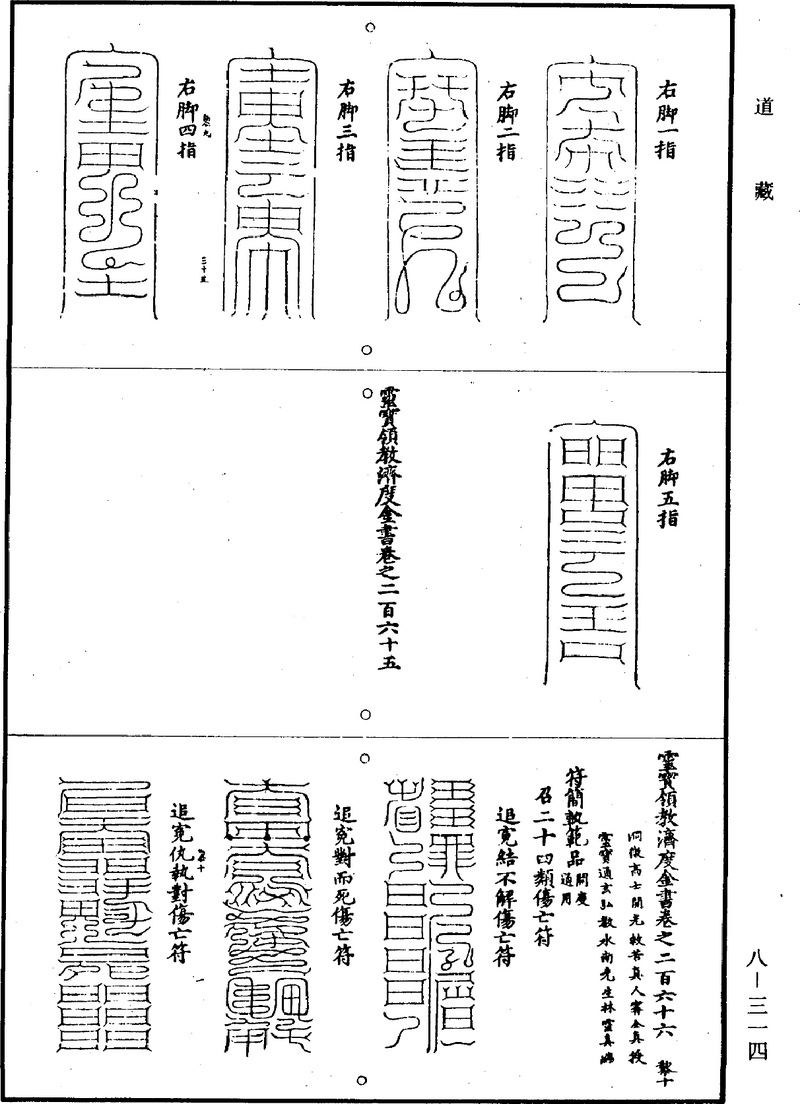 道藏
右脚一指
右脚二指
右脚三指
右脚四指
右脚五指
靈寶領教濟度金書卷之二百六十五
靈寶領教濟度金書卷之二百六十六
洞微高士開光救苦真人寗全真授
靈寶通玄弘教水南先生林靈真編
符簡軌範品開度通用
召二十四類傷亡符
追寃結不解傷亡符
追寃對而死傷亡符
追寃仇執對傷亡符
八—三一四